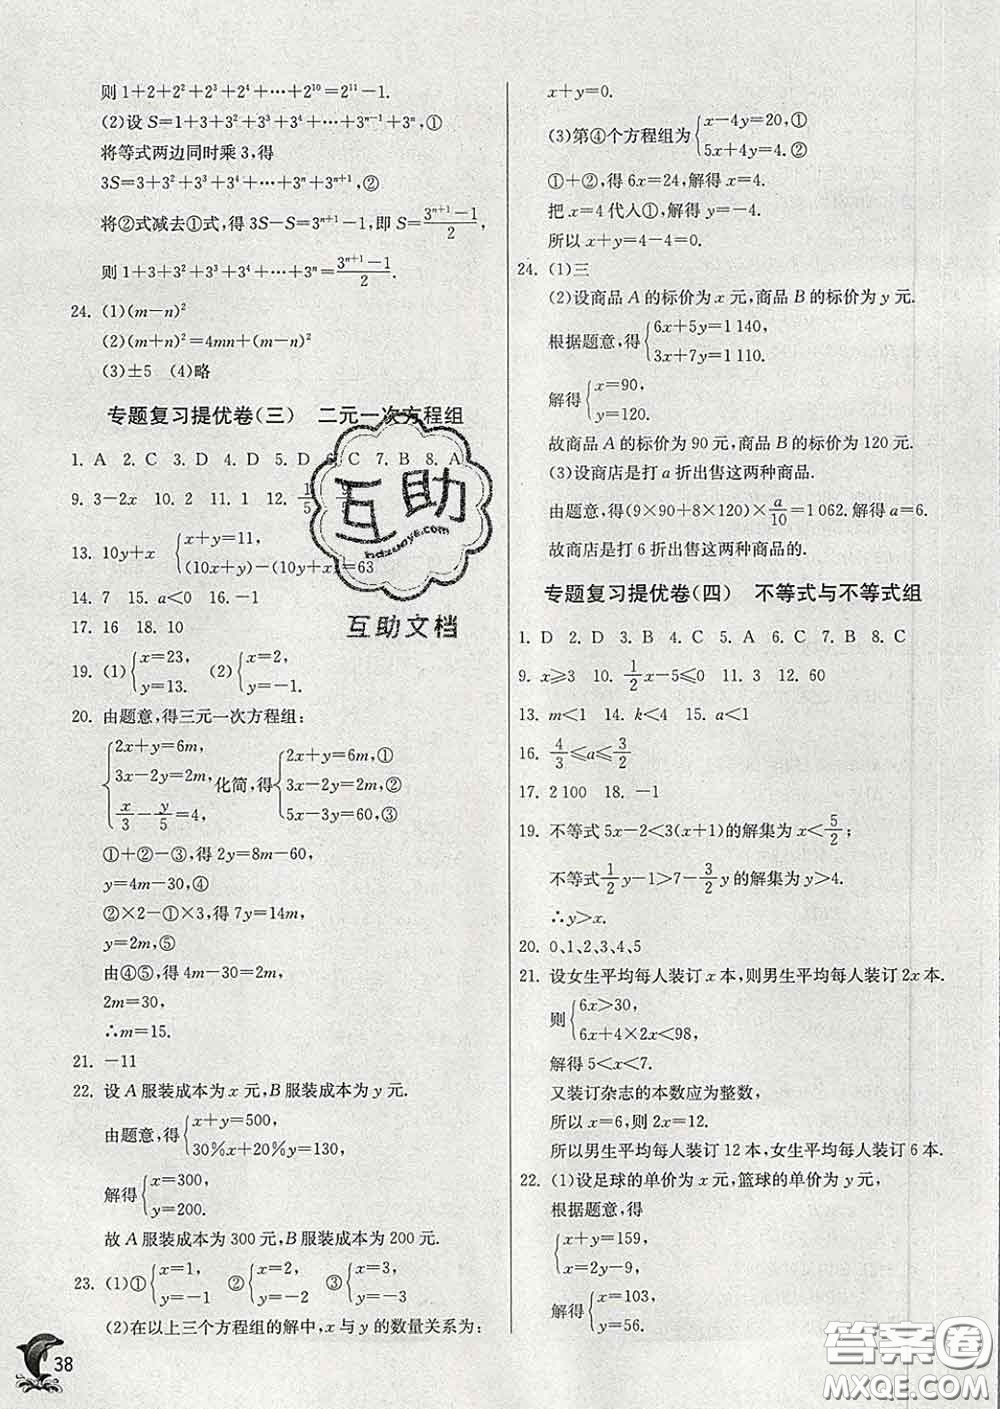 则 1+2+2²+2³+2⁴+⋯+2¹⁰=2¹¹−1.
(2)设 S=1+3+3²+3³+3⁴+⋯+3ⁿ⁻¹+3ⁿ,①
将等式两边同时乘 3,得
3S=3+3²+3³+3⁴+⋯+3ⁿ+3ⁿ⁺¹,②
将②式减去①式,得 3S−S=3ⁿ⁺¹−1,即 S=(3ⁿ⁺¹−1)/2,
则 1+3+3²+3³+3⁴+⋯+3ⁿ=(3ⁿ⁺¹−1)/2.
24. (1)(m−n)²
(2)(m+n)²=4mn+(m−n)²
(3)±5 (4)略
专题复习提优卷(三) 二元一次方程组
1. A 2. C 3. D 4. D 5. D 6. C 7. B 8. A
9. 3−2x 10. 2 11. 1 12. 1/5
13. 10y+x {x+y=11,
(10x+y)−(10y+x)=63
14. 7 15. a<0 16. −1
17. 16 18. 10
19. (1){x=23, y=13. (2){x=2, y=−1.
20. 由题意,得三元一次方程组:
{2x+y=6m, 3x−2y=2m, x/3−y/5=4, 化简,得{2x+y=6m,① 3x−2y=2m,② 5x−3y=60,③
①+②−③,得 2y=8m−60,
y=4m−30,④
②×2−①×3,得 7y=14m,
y=2m,⑤
由④⑤,得 4m−30=2m,
2m=30,
∴m=15.
21. −11
22. 设 A 服装成本为 x 元,B 服装成本为 y 元.
由题意,得{x+y=500, 30%x+20%y=130,
解得{x=300, y=200.
故 A 服装成本为 300 元,B 服装成本为 200 元.
23. (1)①{x=1, y=−1 ②{x=2, y=−2 ③{x=3, y=−3
(2)在以上三个方程组的解中,x 与 y 的数量关系为:
38
互助
hdzuoye.com
互助文档
x+y=0.
(3)第④个方程组为{x−4y=20,① 5x+4y=4.②
①+②,得 6x=24,解得 x=4.
把 x=4 代人①,解得 y=−4.
所以 x+y=4−4=0.
24. (1)三
(2)设商品 A 的标价为 x 元,商品 B 的标价为 y 元.
根据题意,得{6x+5y=1 140, 3x+7y=1 110.
解得{x=90, y=120.
故商品 A 的标价为 90 元,商品 B 的标价为 120 元.
(3)设商店是打 a 折出售这两种商品.
由题意,得(9×90+8×120)×a/10=1 062.解得 a=6.
故商店是打 6 折出售这两种商品的.
专题复习提优卷(四) 不等式与不等式组
1. D 2. D 3. B 4. C 5. A 6. C 7. B 8. C
9. x⩾3 10. 1/2x−5⩽0 11. 3 12. 60
13. m<1 14. k<4 15. a<1
16. 4/3⩽a⩽3/2
17. 2 100 18. −1
19. 不等式 5x−2<3(x+1)的解集为 x<5/2;
不等式1/2y−1>7−3/2y 的解集为 y>4.
∴y>x.
20. 0、1、2、3、4、5
21. 设女生平均每人装订 x 本,则男生平均每人装订 2x 本.
则{6x>30, 6x+4×2x<98,
解得 5<x<7.
又装订杂志的本数应为整数,
所以 x=6,则 2x=12.
所以男生平均每人装订 12 本,女生平均每人装订 6 本.
22. (1)设足球的单价为 x 元,篮球的单价为 y 元,
根据题意,得
{x+y=159, x=2y−9,
解得{x=103, y=56.
答案圈
MXQE.COM